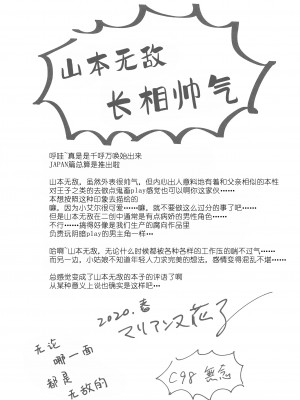 山本无敌
长相帅气
呼哇~真是是千呼万唤始出来
JAPAN篇总算是推出啦
山本无敌，虽然外表很帅气，但内心出人意料地有着和父亲相似的本性
对王子之类的去做点鬼畜play感觉也可以啊你这家伙……
本想按照这种印象去描绘的
嘛，因为小艾尔很可爱……嘛，就不要做这么过分的事了吧……
但是山本无敌在二创中通常是有点病娇的男性角色……
不行……搞得好像是我们生产的腐向作品里
负责玩阴暗play的男主角一样…
哈啊~山本无敌，无论什么时候都被各种各样的工作压的喘不过气……
而另一边，小姑娘不知道年轻人力求完美的想去，感情变得混乱不堪……
总感觉变成了山本无敌的本子的评语了啊
从某种意义上说也确实是这样吧…
2020.春
无论
哪一面
都是
无敌的
C98